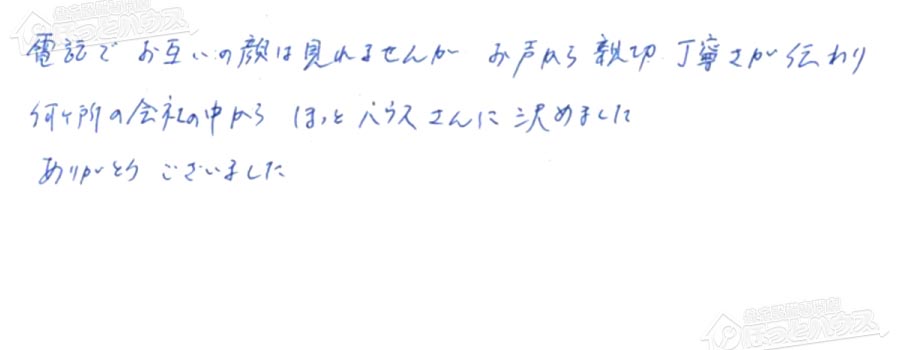 電話で お互いの顔は見れませんが お声から 親切 丁寧さが伝わり
何ヶ所の会社の中から ほっとハウスさんに決めました
ありがとう ございました
ほっとハウス
ほっとハウス